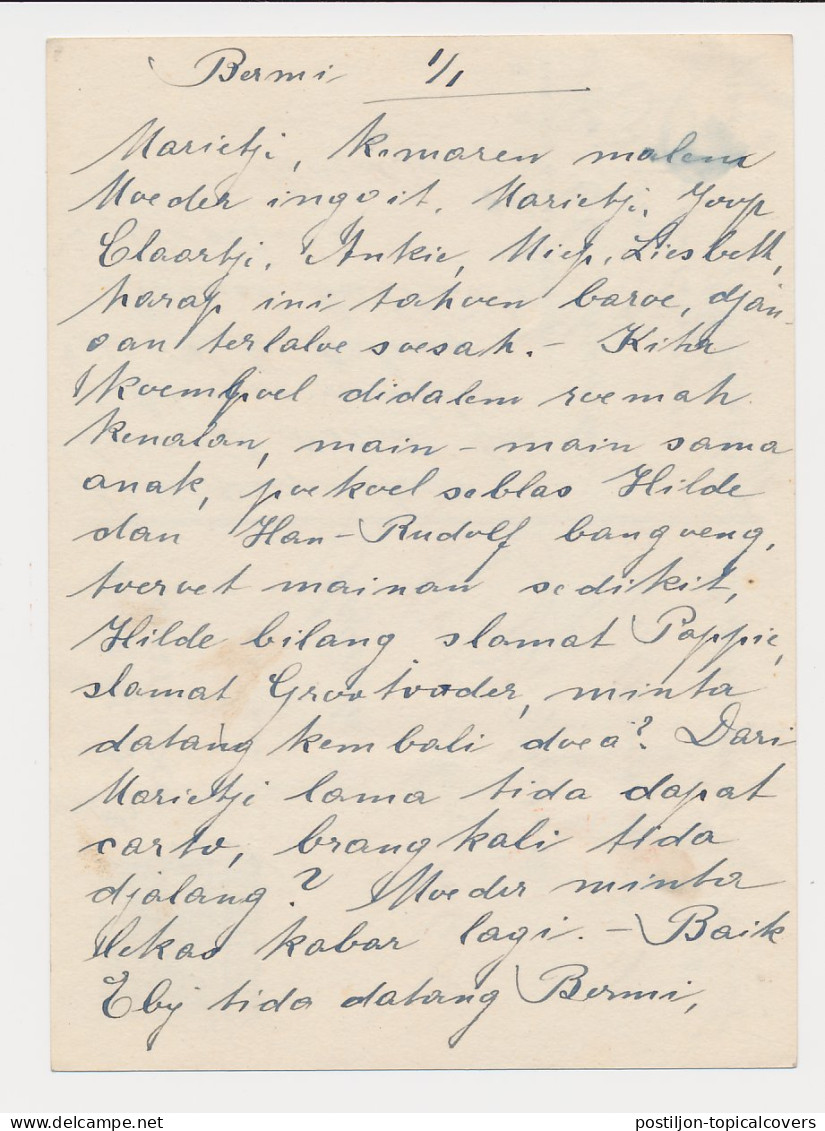 Bermi 1/1
Marietji, kemaren malem
Moeder ingoit, Marietji, Joop
Claartji, Ankie, Miep, Liesbeth,
harap ini tahoen baroe, djan-
oan terlaloe soesah. - Kita
koempoel didalem roemah
kenalan, main - main sama
anak, poekoel seblas Hilde
dan Han-Rudolf bangoeng,
toeroet mainan sedikit,
Hilde bilang slamat Pappie,
slamat Grootvader, minta
datang kembali doea? Dari
Marietji lama tida dapat
carto, brangkali tida
djalang? Moeder minta
lekas kabar lagi. - Baik
Eby tida datang Bermi,
postiljon-topicalcovers